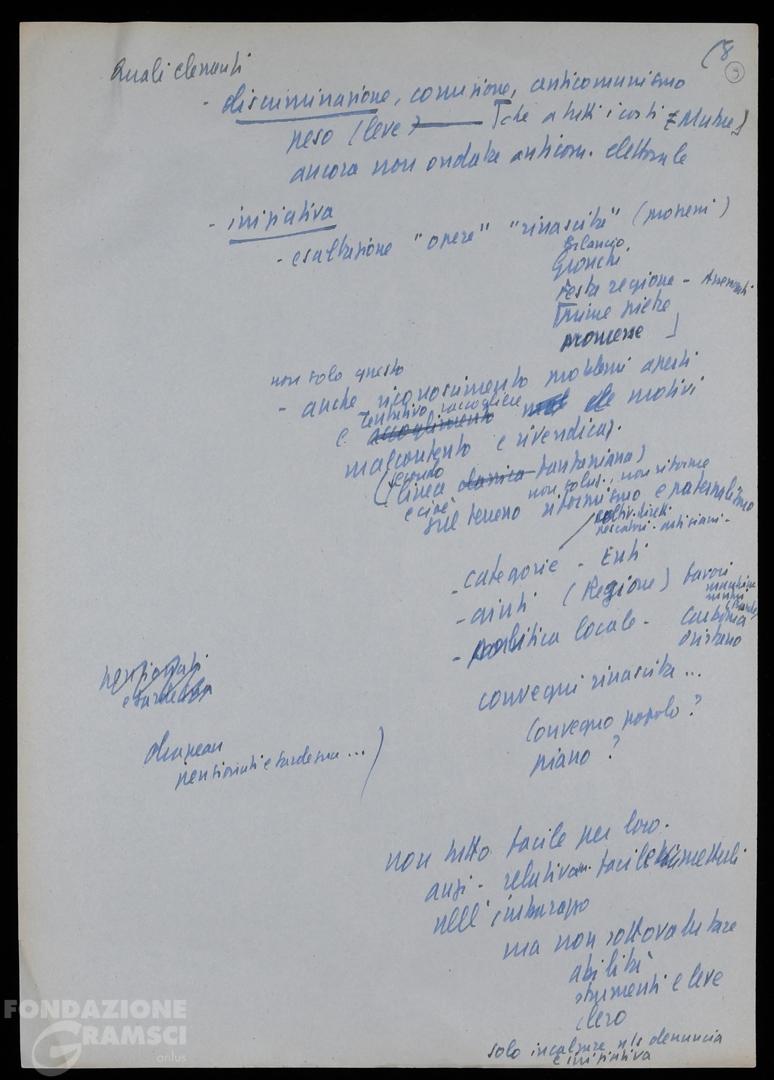 (8
9
Quali elementi
- discriminazione, corruzione, anticomunismo
peso (leve) che a tutti i costi
ancora non ondata anticom. elettorale
- iniziativa
- esaltazione "opere" "rinascita" (
Bilancio
Gronchi
Festa regione -
Prime pietre
promesse
non solo questo
- anche riconoscimento problemi aperti
e tentativo raccogliere motivi
malcontento e rivendicaz.
(secondo
linea classica fanfaniana)
e cioè non riforme
sul terreno riformismo e paternalismo
coltiv. diretti
pescatori - artigiani -
- categorie - Enti
- aiuti (Regione) favori
- politica locale - Carbonia
Oristano
convegni rinascita ...
Convegno popolo?
piano?
pensionati
pensionati e
non tutto facile per loro.
anzi - relativam. facile metterli
nell'imbarazzo
ma non sottovalutare
abilità
strumenti e leve
clero
solo incalzare n/s denuncia
e iniziativa
FONDAZIONE
GRAMSCI
onlus